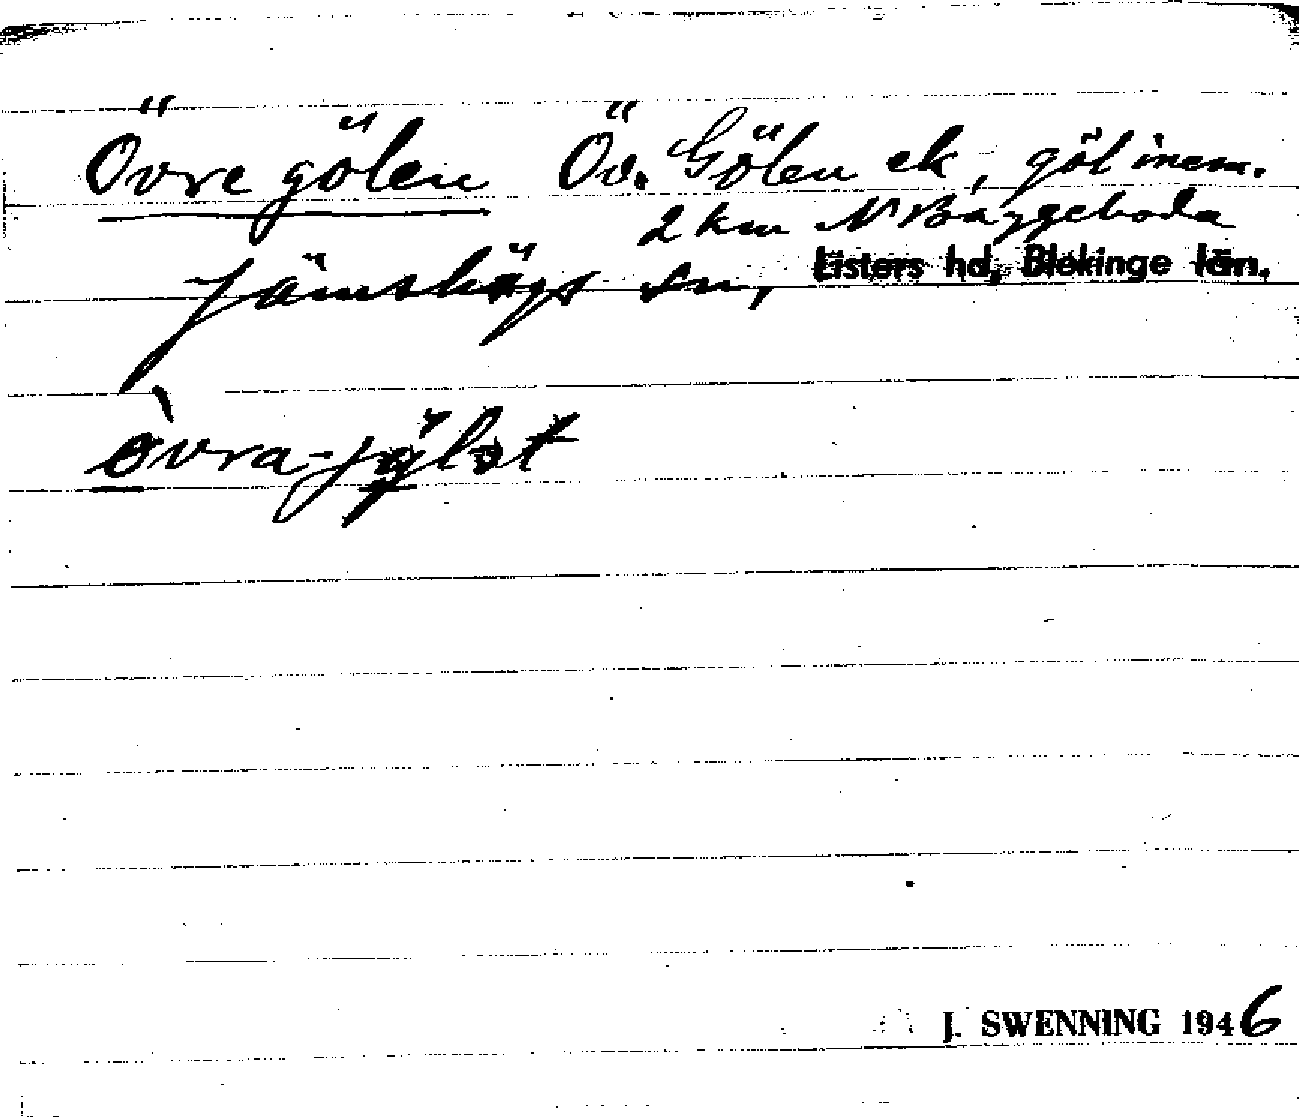 Övre gölen Öv. Gölen ek, göl inom.
2 km N Baggeboda
Jämshögs sn, Listers hd, Blekinge län.
òvra-jylət
J. SWENNING 1946